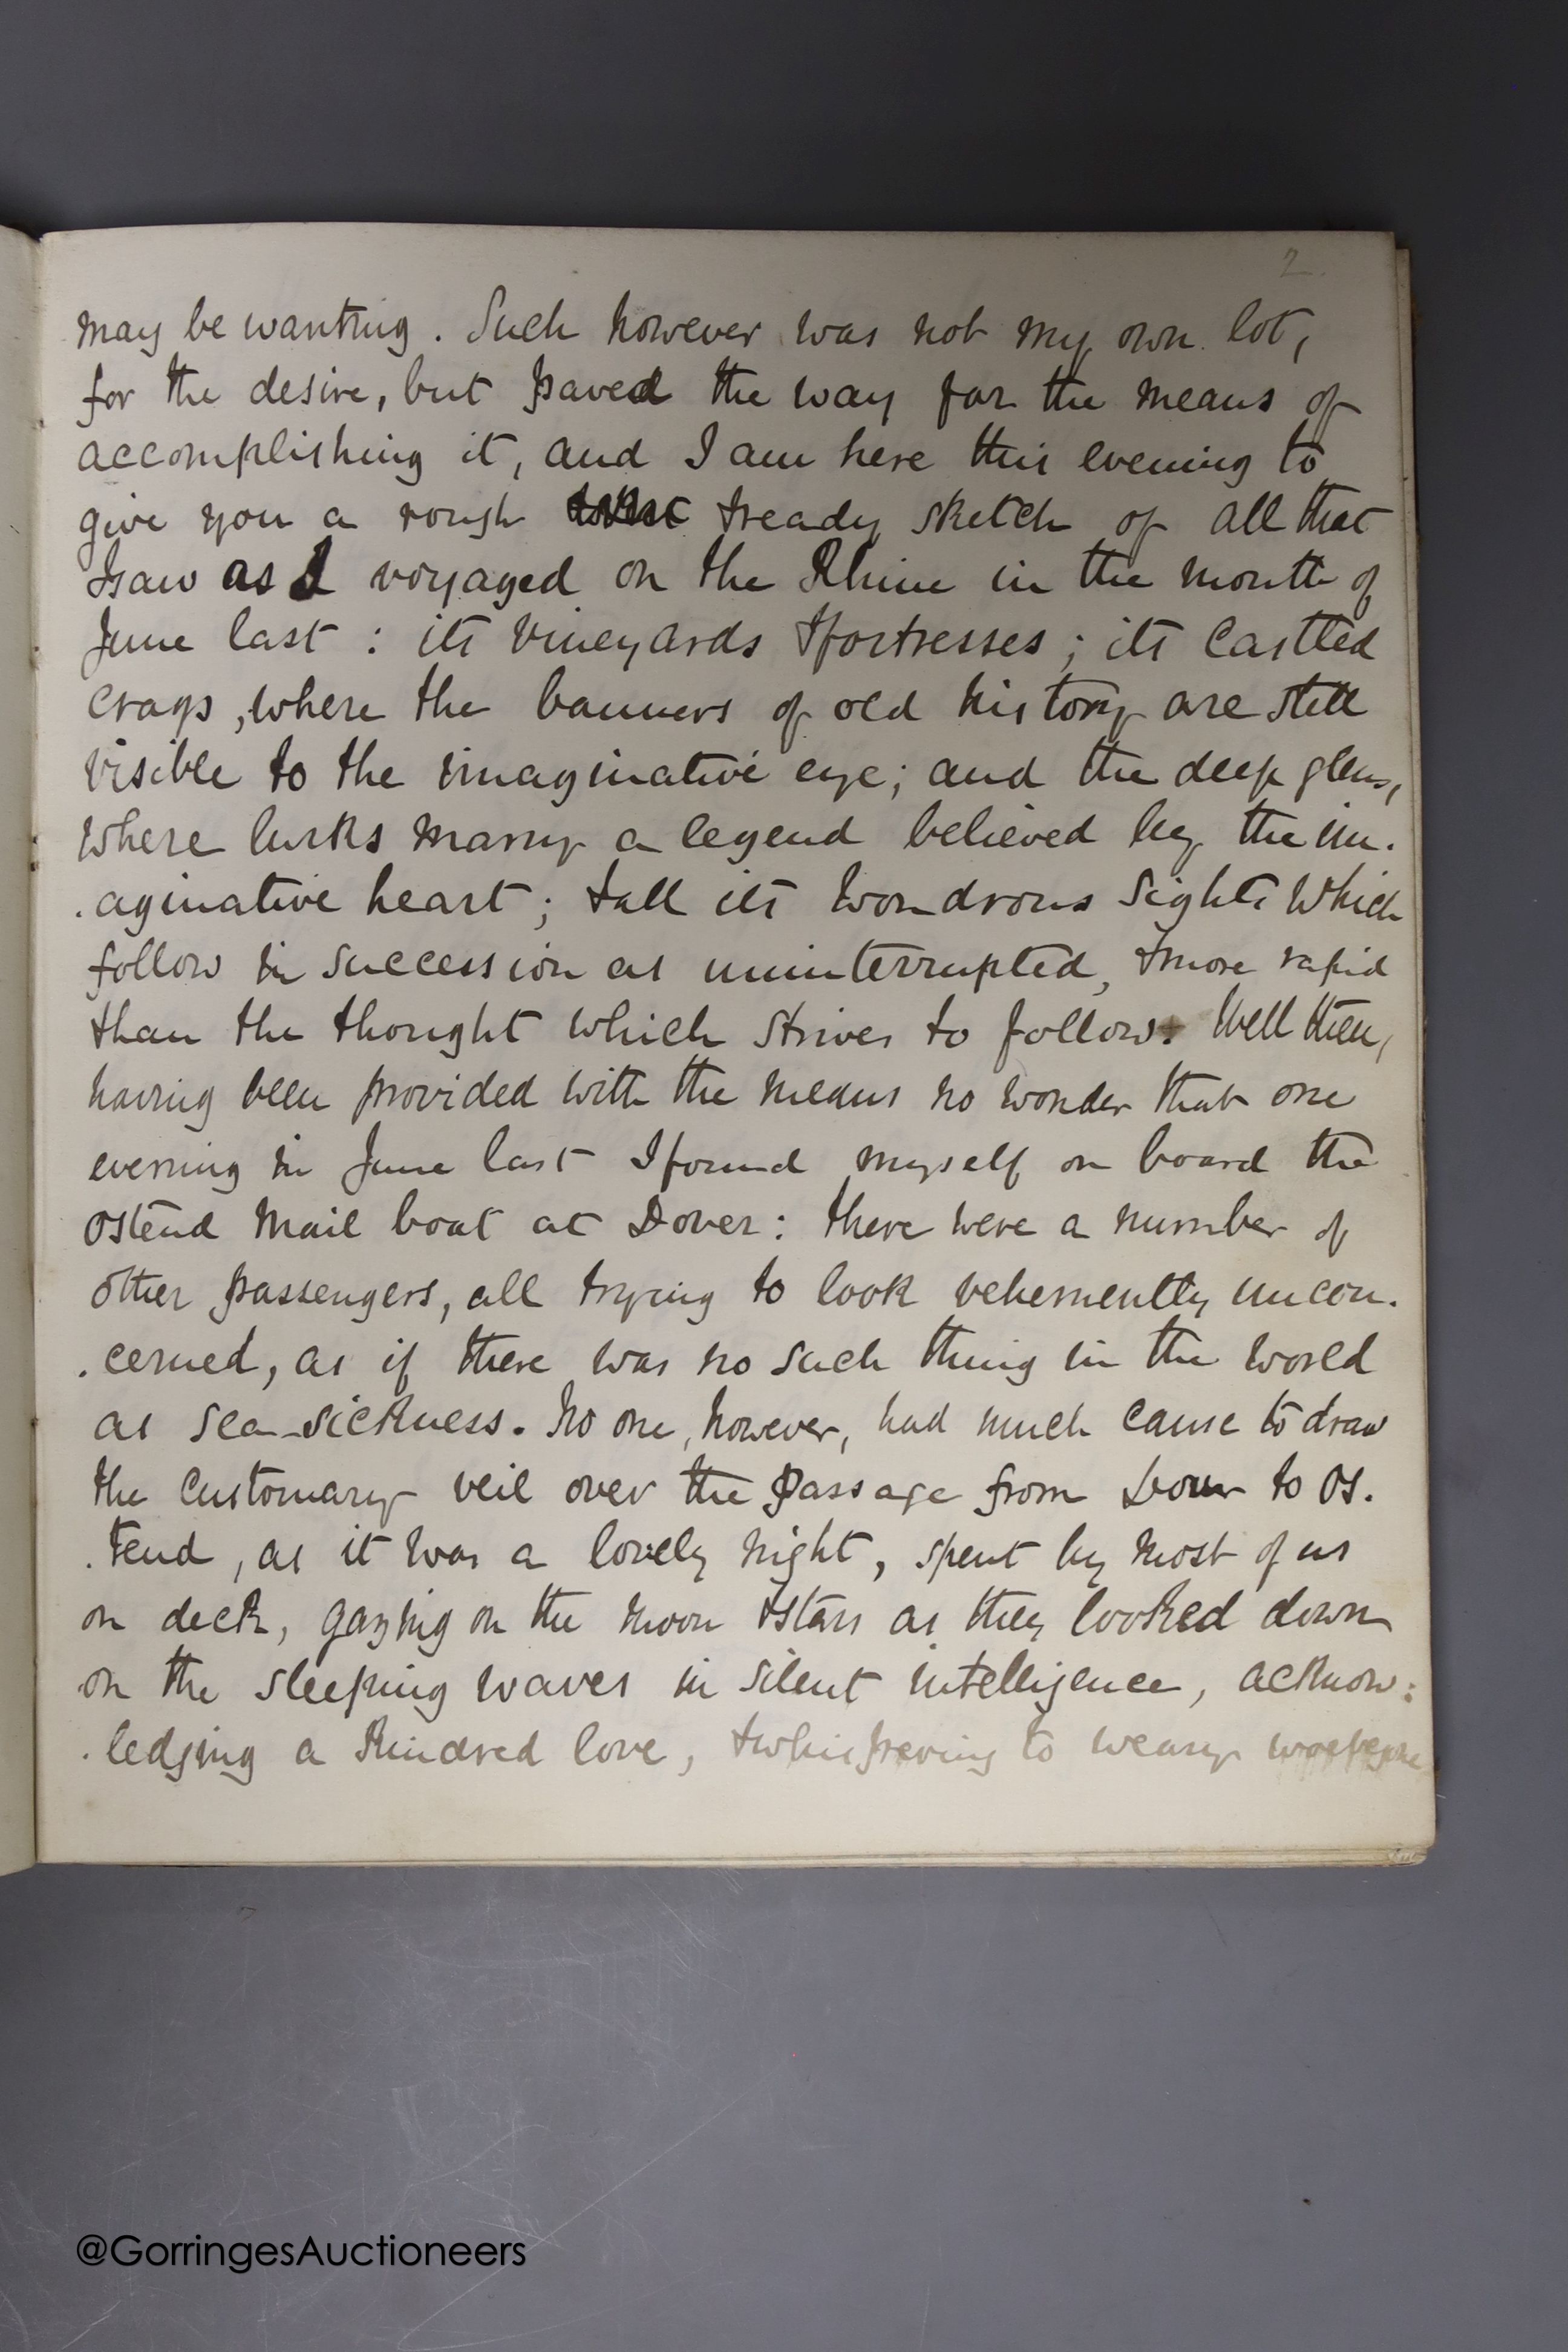 2.
may be wanting. Such however was not my own lot,
for the desire, but paved the way for the means of
accomplishing it, and I am here this evening to
give you a rough & ready sketch of all that
I saw as I voyaged on the Rhine in the month of
June last : its vineyards & fortresses ; its castled
crags, where the banners of old history are still
visible to the imaginative eye; and the deep glens,
where lurks many a legend believed by the im.
.aginative heart ; & all its wondrous sights which
follow in succession as uninterrupted, & more rapid
than the thought which strives to follow. Well then,
having been provided with the means no wonder that one
evening in June last I found myself on board the
Ostend Mail boat at Dover : there were a number of
other passengers, all trying to look vehemently uncon.
.cerned, as if there was no such thing in the world
as sea-sickness. No one, however, had much cause to draw
the customary veil over the passage from Dover to Os.
.tend, as it was a lovely night, spent by most of us
on deck, gazing on the moon & stars as they looked down
on the sleeping waves in silent intelligence, acknow:
.ledging a kindred love, & whispering to weary
@GorringesAuctioneers